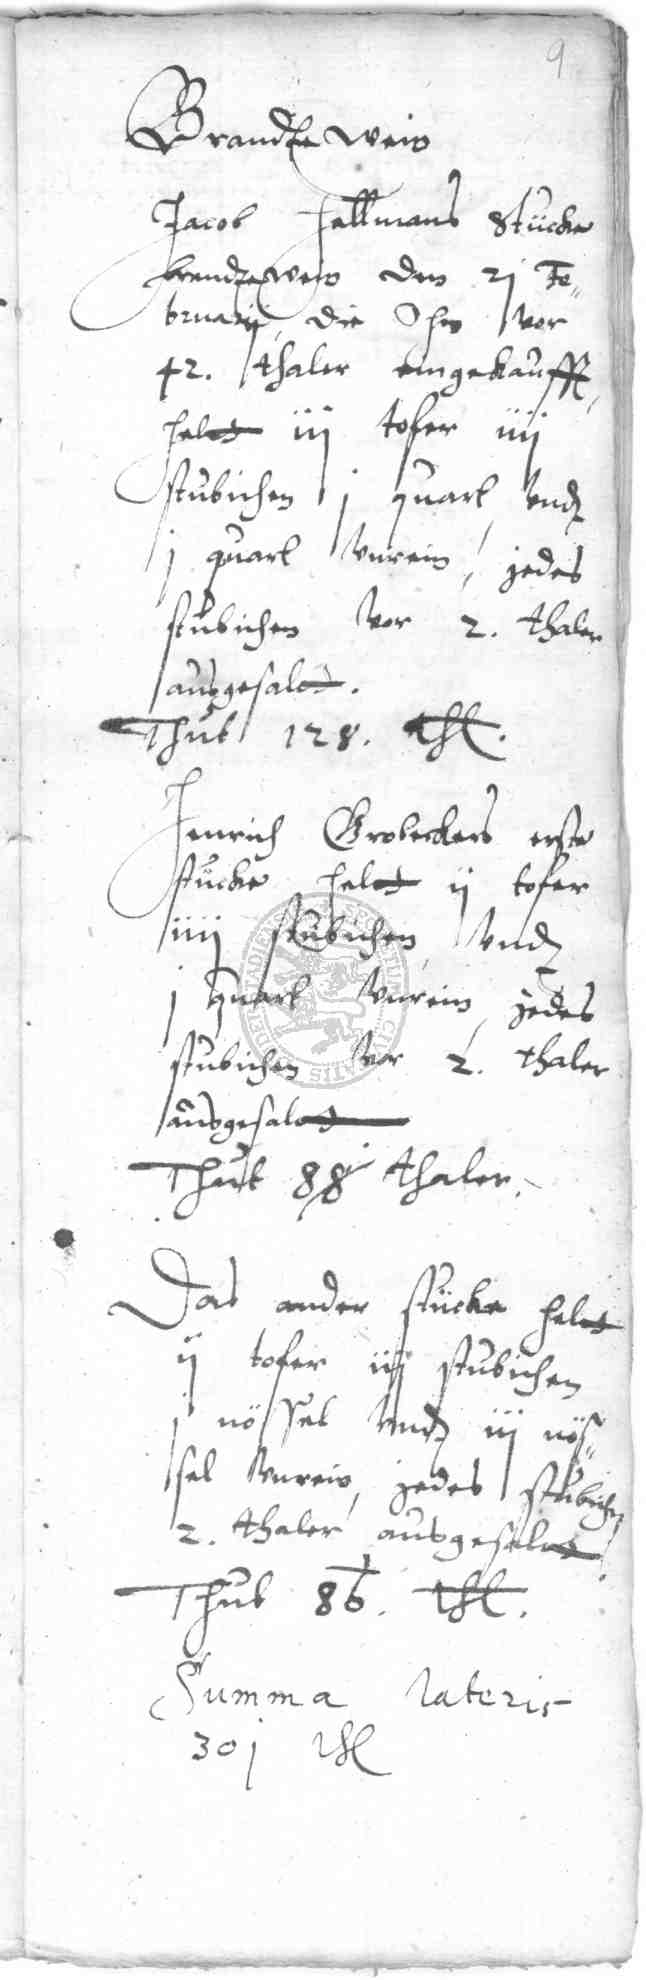 9
Brandtewein
Jacob Hellmans Stücke
brandtewein den 2j Fe=
bruarij, die Ohm vor
42. thaler eingekaufft,
helt iij tofer iiij
stubichen j quart, vnd
j quart vnrein, jedes
stubichen vor 2. thaler
ausgesalt.
Thut 128. thl.
Henrich Grobeckers erste
stücke helt ij tofer
iiij stubichen, vnd
j quart vnrein, jedes
stubichen vor 2. thaler
ausgesalt
Thut 88 thaler.
Das ander stücke helt
ij tofer iij stubichen
j nössel vnd iij nös=
sel vnrein, jedes stubichen
2. thaler ausgesalt,
Thut 86. thl.
Summa lateris
30j thl